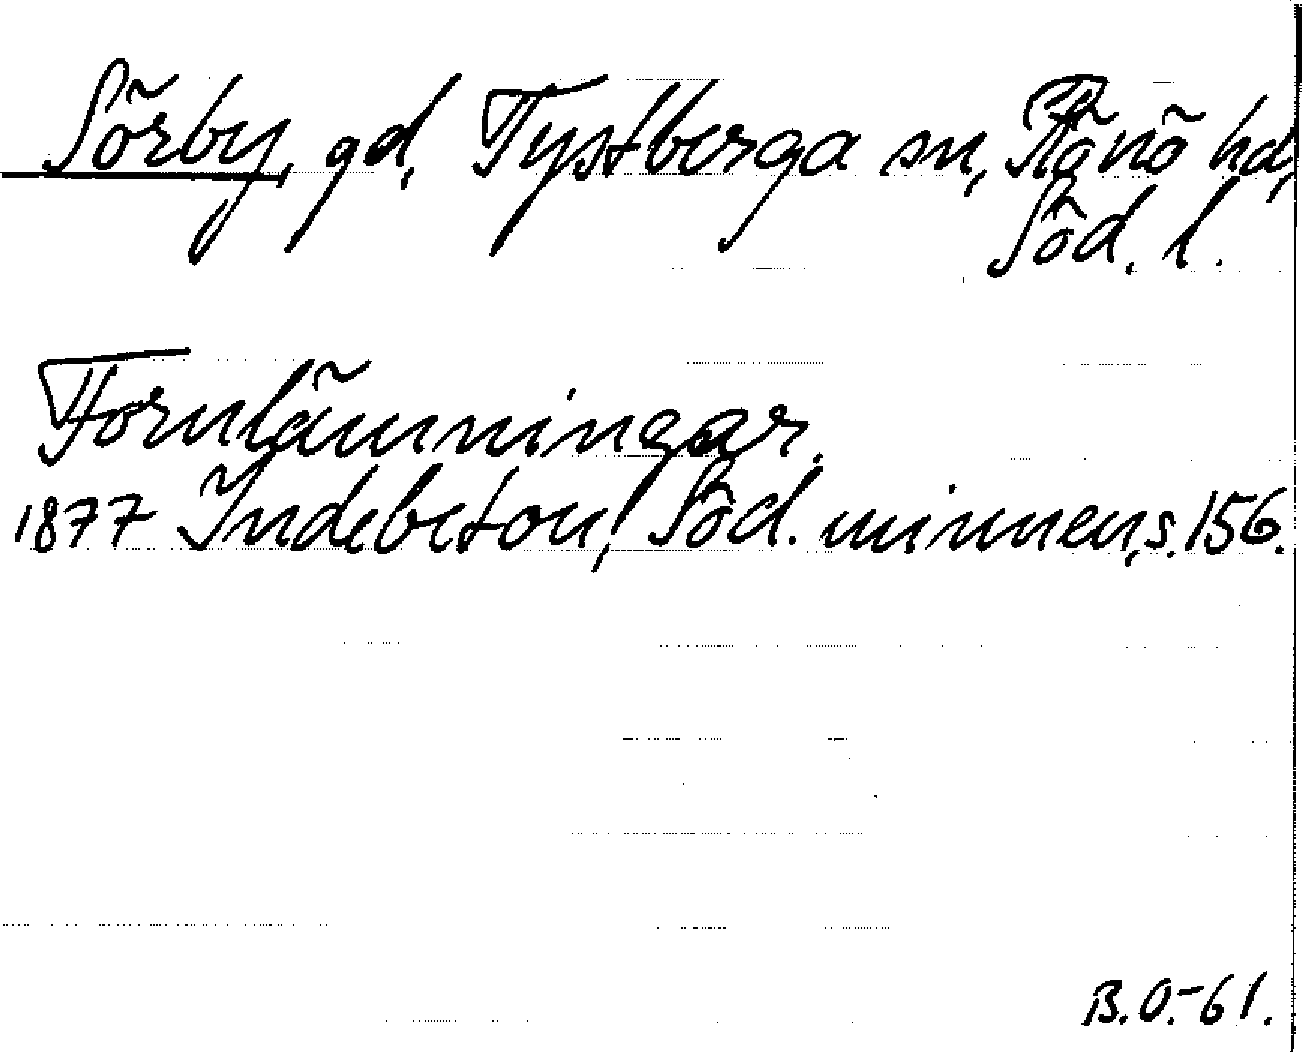 Sörby, gd, Tystberga sn, Rönö hd,
Söd. l.
Fornlämningar.
1877 Indebetou, Söd. minnen, s. 156.
B.O.-61.